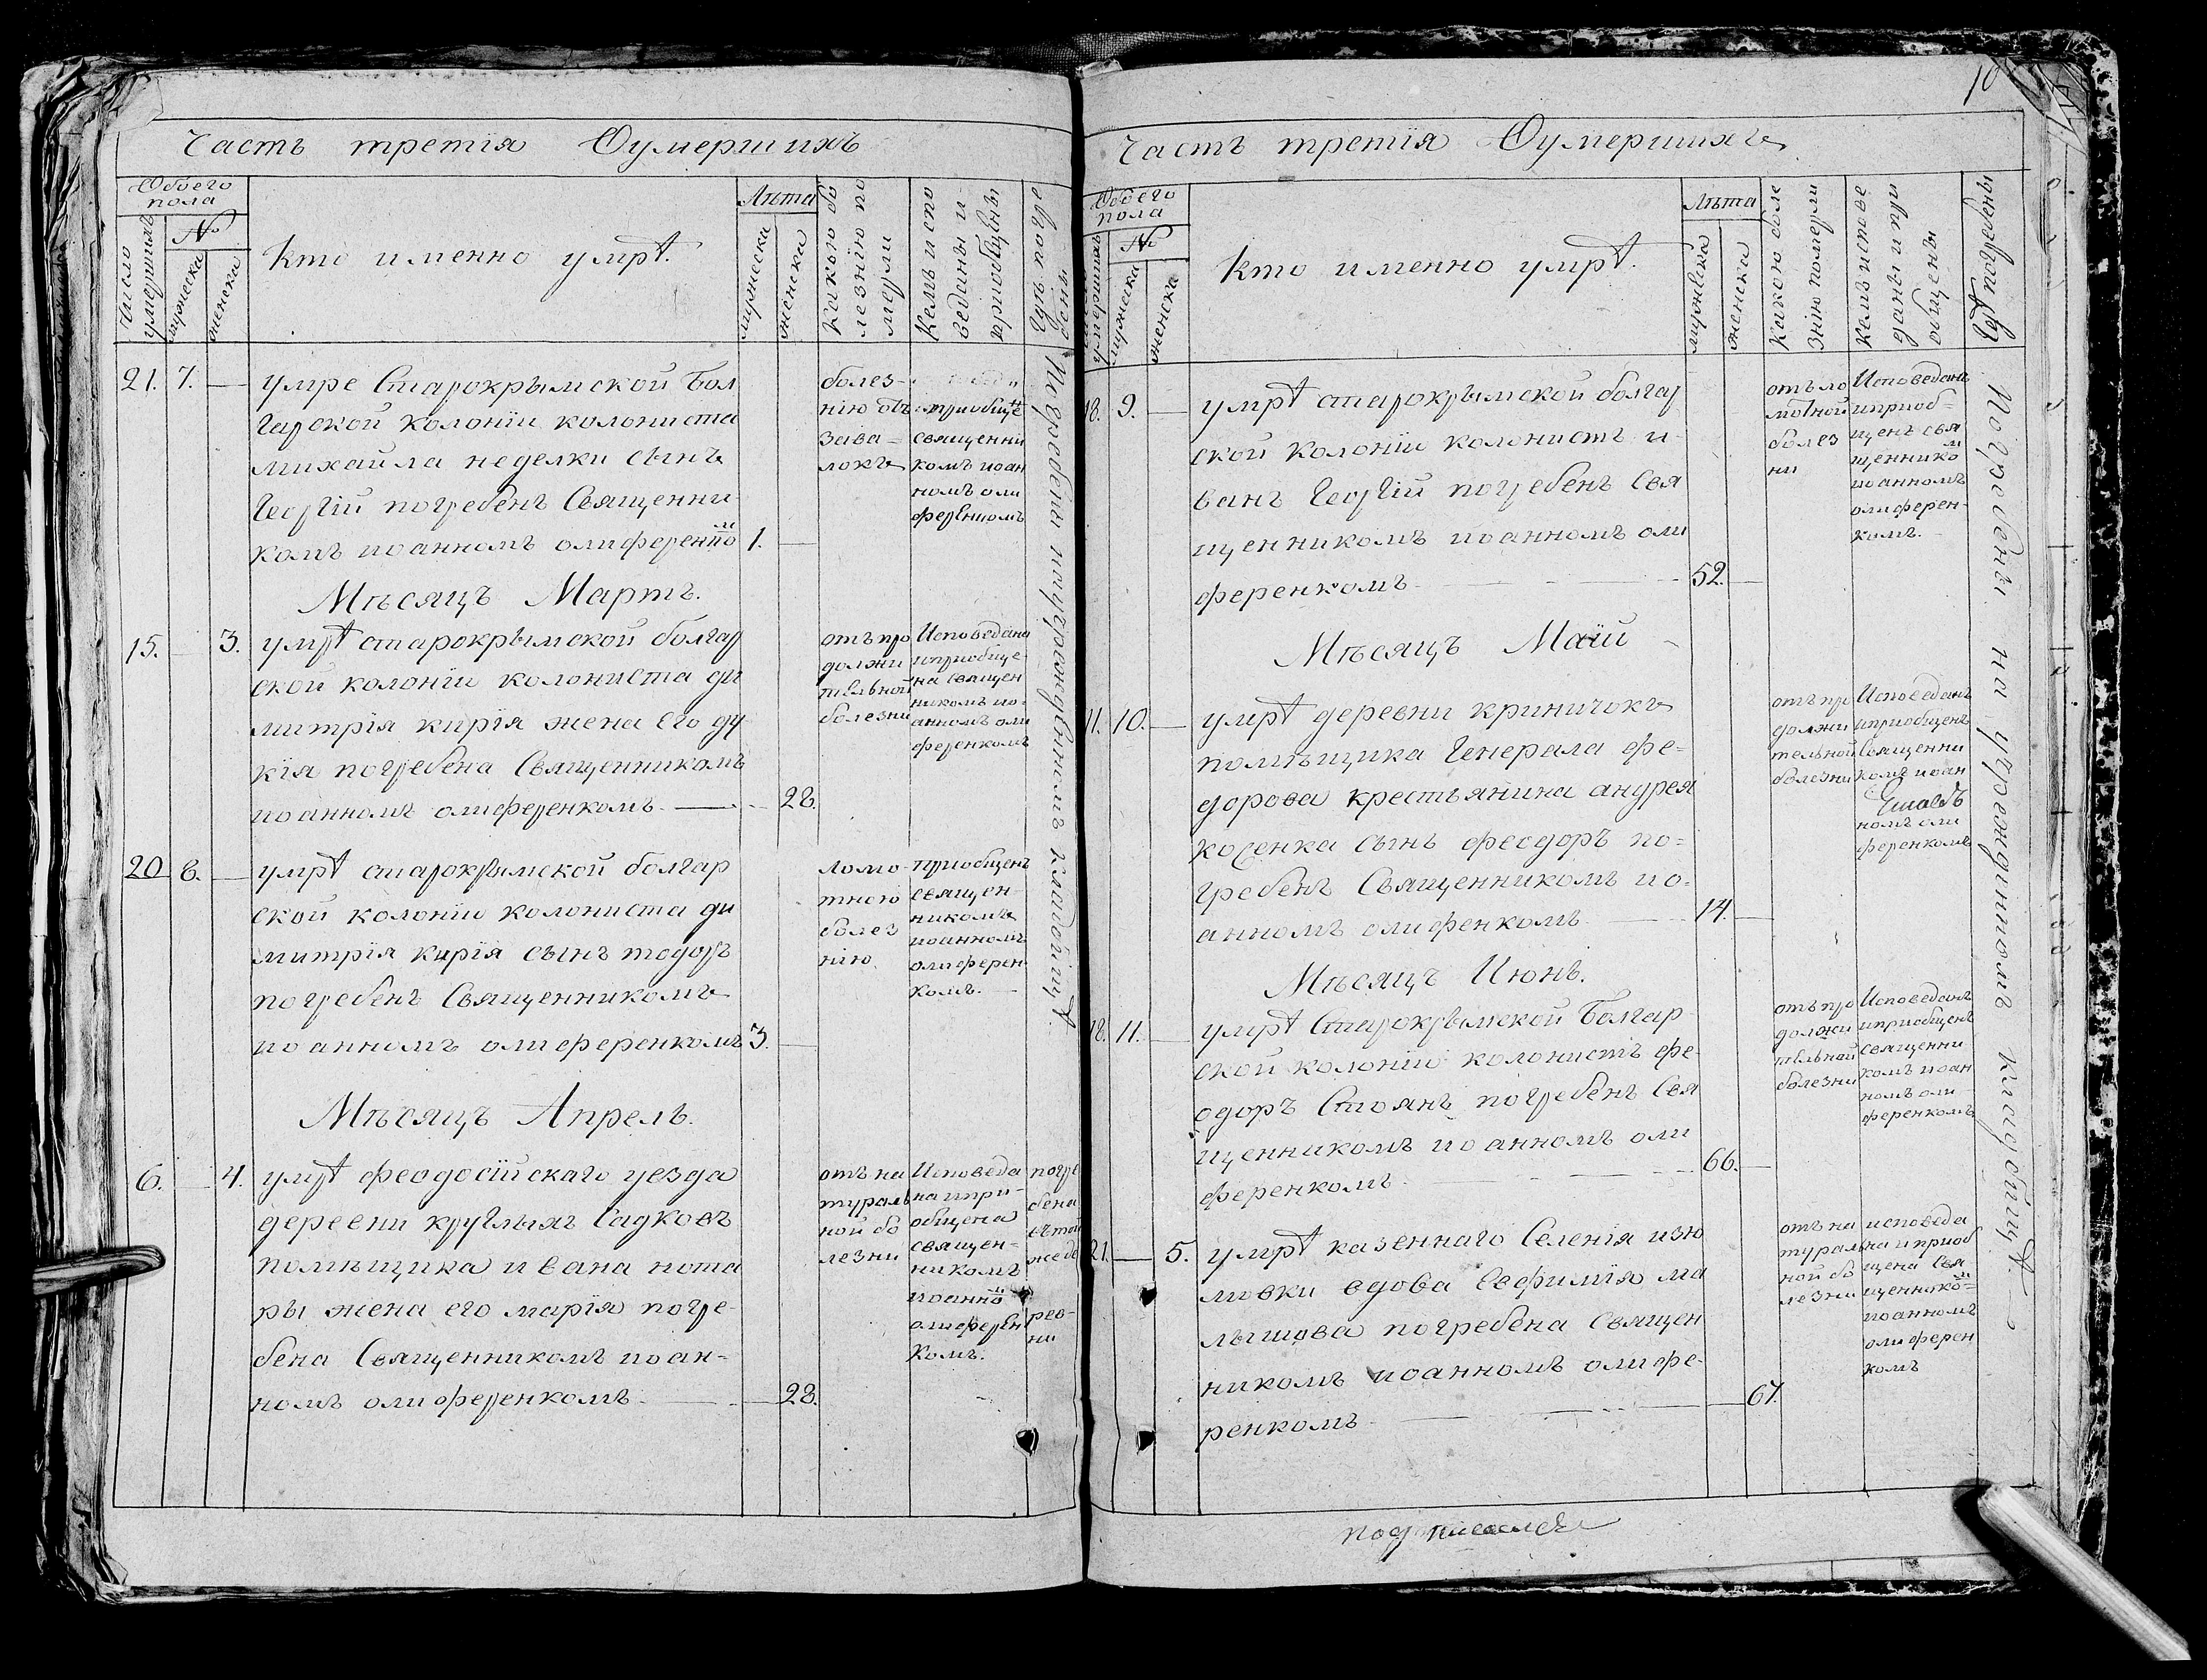 Часть третія Оумершихъ
Обоего
пола
Число
умершихъ
№
мужеска
женска
Кто именно умрѣ.
Лѣта
мужеска
женска
Какою бо
лезнію по
мерли
Кемъ испо
веданы и
приобщены
где погребены
21. 7. — умре Старокрымской Бол
гарской колоніи колониста
михайла неделки сынъ
Георгій погребенъ Священни
комъ иоанномъ олиференко 1. —
болез-
нію отъ
зава=
локъ
приобще
священни
комъ иоан
номъ оли
ференкомъ
Мѣсяцъ Мартъ.
15. — 3. умрѣ старокрымской болгар
ской колоніи колониста ди
митрія кирія жена его ду
кія погребена Священникомъ
иоанномъ олиференкомъ — 28.
отъ про
должи
тельной
болезни
Исповедана
и приобще
на священ
никомъ ио
анномъ оли
ференкомъ
20 8. — умрѣ старокрымской болгар
ской колоніи колониста ди
митрія кирія сынъ тодоръ
погребенъ Священникомъ
иоанномъ олиференкомъ 3. —
ломо-
тною
болез
нію
приобщенъ
священ-
никомъ
иоанномъ
олиферен
комъ. —
Мѣсяцъ Апрель.
6. — 4. умрѣ феодосійскаго уезда
деревни круглыхъ Садковъ
помѣщика ивана нота
ры жена его марія погре-
бена Священникомъ иоан-
номъ олиференкомъ — 28.
отъ на
тураль
ной бо
лезни
Исповеда
на и при-
общена
священ-
никомъ
иоанно
олиферен
комъ.
погре
бена
въ той
же де
рев-
ни
Погребены на учрежденномъ кладбищѣ.
10
Часть третія Оумершихъ
Обоего
пола
№
мужеска
женска
Кто именно умрѣ.
Лѣта
мужеска
женска
Какою боле
знію померли
кемъ испове
даны и при
общены
где погребены
18. 9. — умрѣ старокрымской болгар
ской колоніи колонистъ и-
ванъ Георгій погребенъ Свя
щенникомъ иоанномъ оли
ференкомъ — 52. —
отъ ло
мотной
болез
ни
Исповеданъ
и приоб=
щенъ свя
щеннико
иоанномъ
олиферен-
комъ.
Мѣсяцъ Маій
11. 10. — умрѣ деревни криничокъ
помѣщика Генерала фе=
дорова крестьянина андрея
косенка сынъ феодоръ по=
гребенъ Священникомъ ио-
анномъ олифенкомъ — 14. —
отъ про
должи
тельной
болезни
Исповеданъ
и приобщенъ
Священни
комъ иоан
номъ оли
ференкомъ
Мѣсяцъ Июнь.
18. 11. — умрѣ Старокрымской Болгар
ской колоніи колонистъ фе-
одоръ Стоянъ погребенъ Свя
щенникомъ иоанномъ оли
ференкомъ — 66. —
отъ про
должи
тельной
болезни
Исповеданъ
и приобщенъ
священни
комъ иоан
номъ оли
ференкомъ
21. — 5. умрѣ казеннаго Селенія изю
мовки вдова Евфимія ма
лышова погребена Священ
никомъ иоанномъ олифе-
ренкомъ — 67.
отъ на
тураль
ной бо
лезни
исповеда
на и приоб
щена свя
щеннико=
иоанномъ
олиферен
комъ
Погребены на учрежденномъ кладбищѣ.